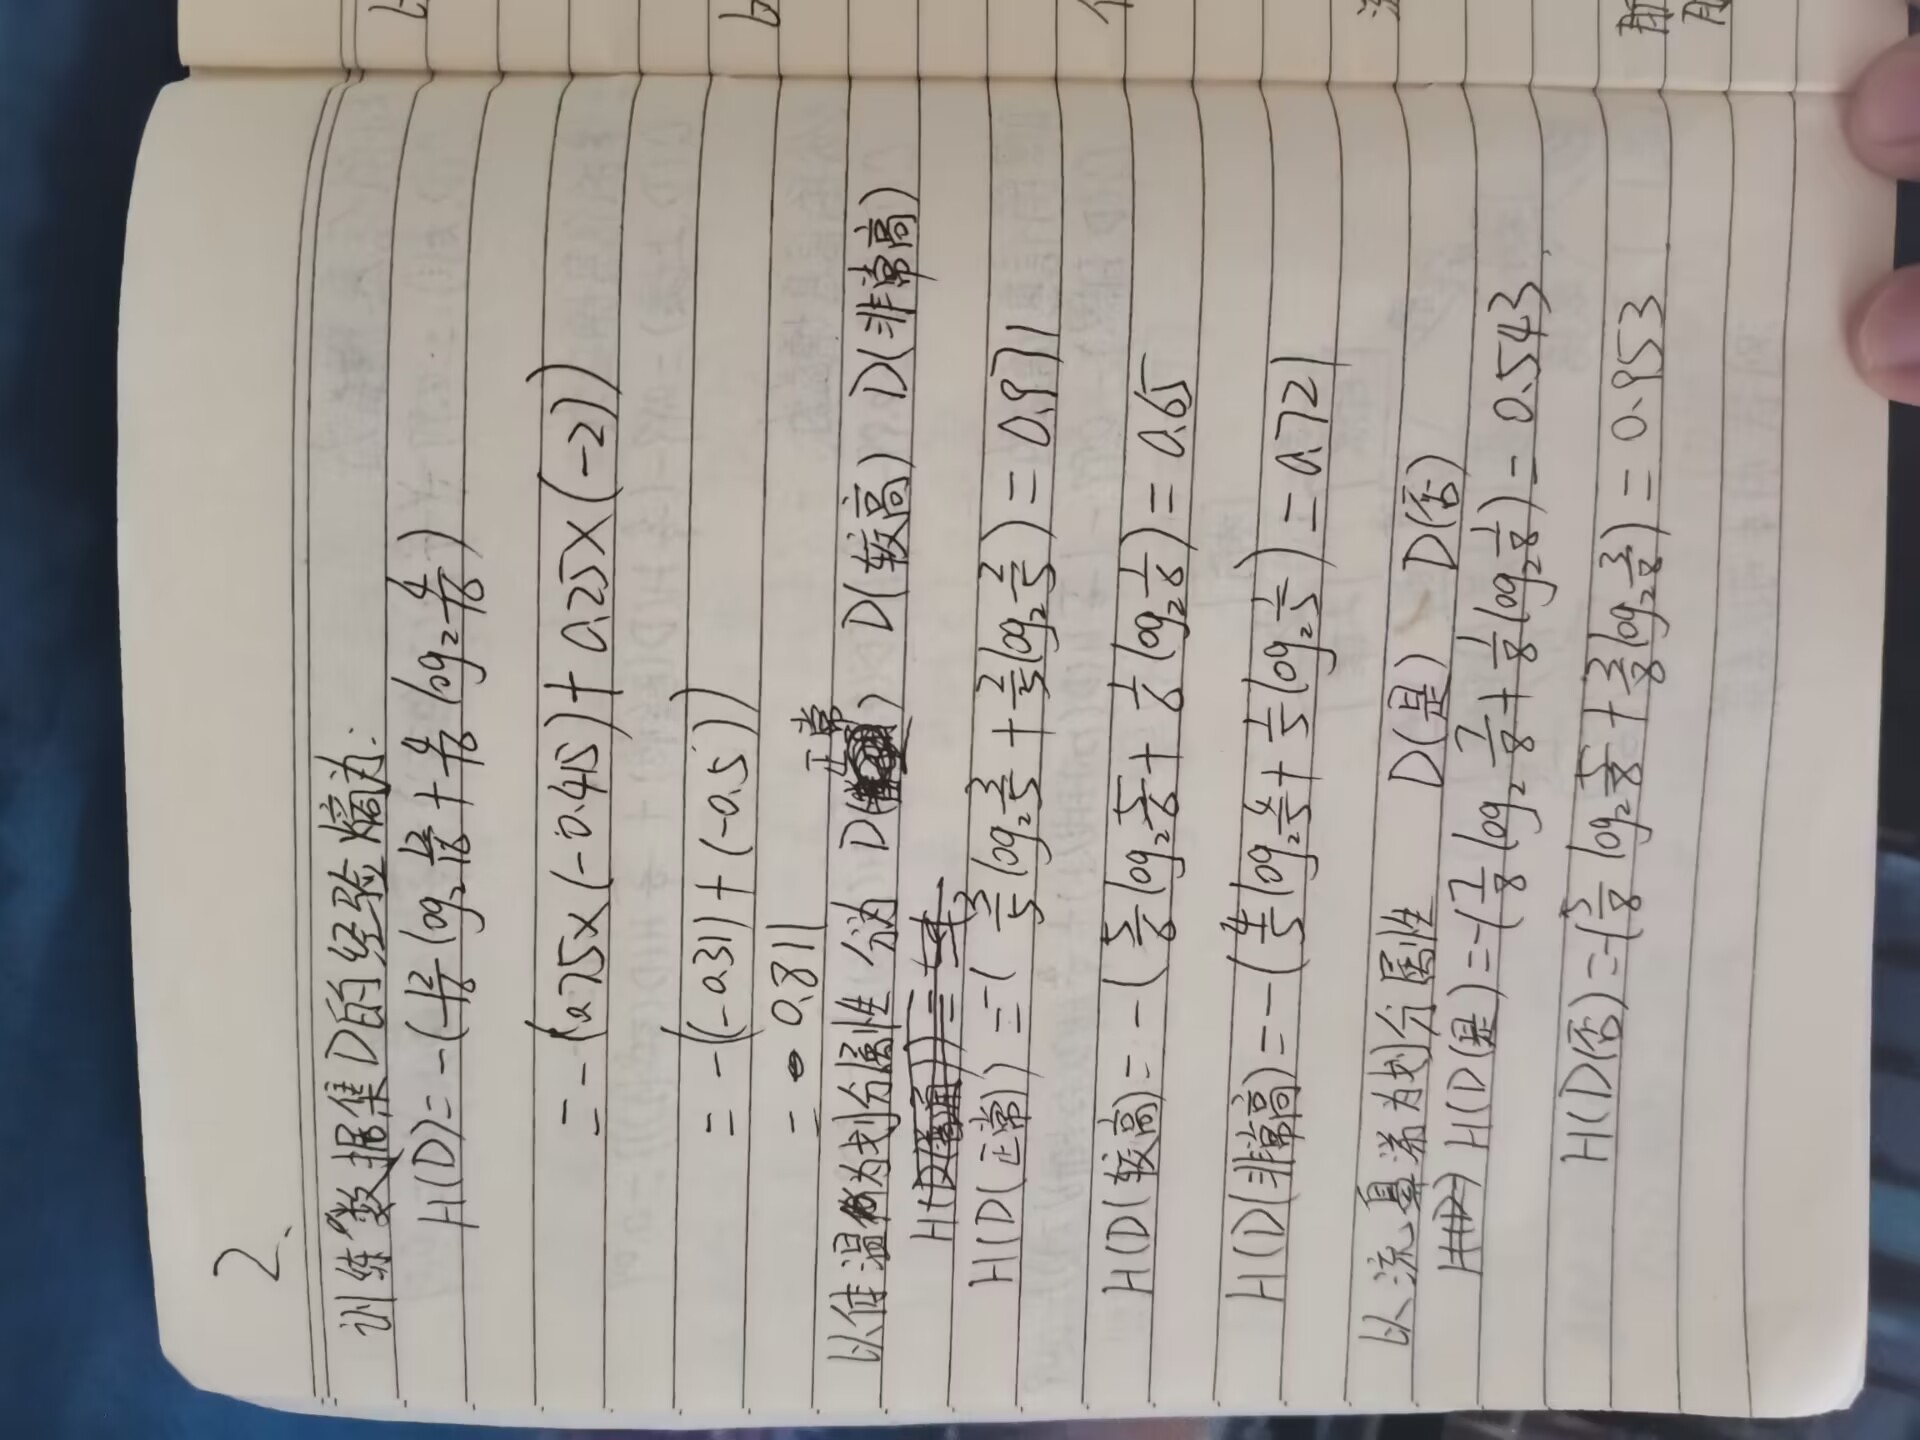 2、
训练数据集D的经验熵为:
H(D)=-(12/16 log₂ 12/16 + 4/16 log₂ 4/16)
=-(0.75×(-0.415)+0.25×(-2))
=-((-0.311)+(-0.5))
=0.811
以体温为划分属性 分为 D(正常) D(较高) D(非常高)
H(D(正常))=-(3/5 log₂ 3/5 + 2/5 log₂ 2/5)=0.971
H(D(较高)=-(5/6 log₂ 5/6 + 1/6 log₂ 1/6)=0.65
H(D(非常高)=-(4/5 log₂ 4/5 + 1/5 log₂ 1/5)=0.721
以流鼻涕为划分属性 D(是) D(否)
H(D(是)=-(7/8 log₂ 7/8 + 1/8 log₂ 1/8)=0.543
H(D(否)=-(5/8 log₂ 5/8 + 3/8 log₂ 3/8)=0.953